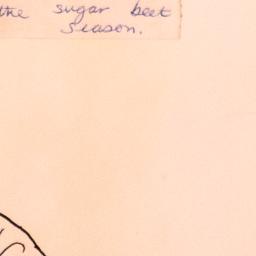 the sugar beet
season.